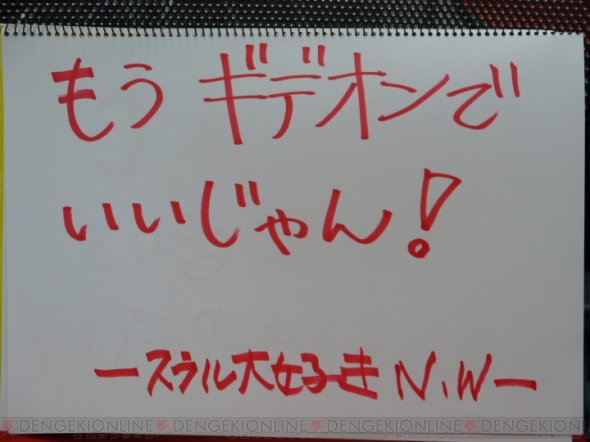 もう ギデオンで
いいじゃん!
ースラル大好き N.Wー
DENGEKIONLINE DENGEKIONLINE DENGEKIONLINE DENGEKIONLINE